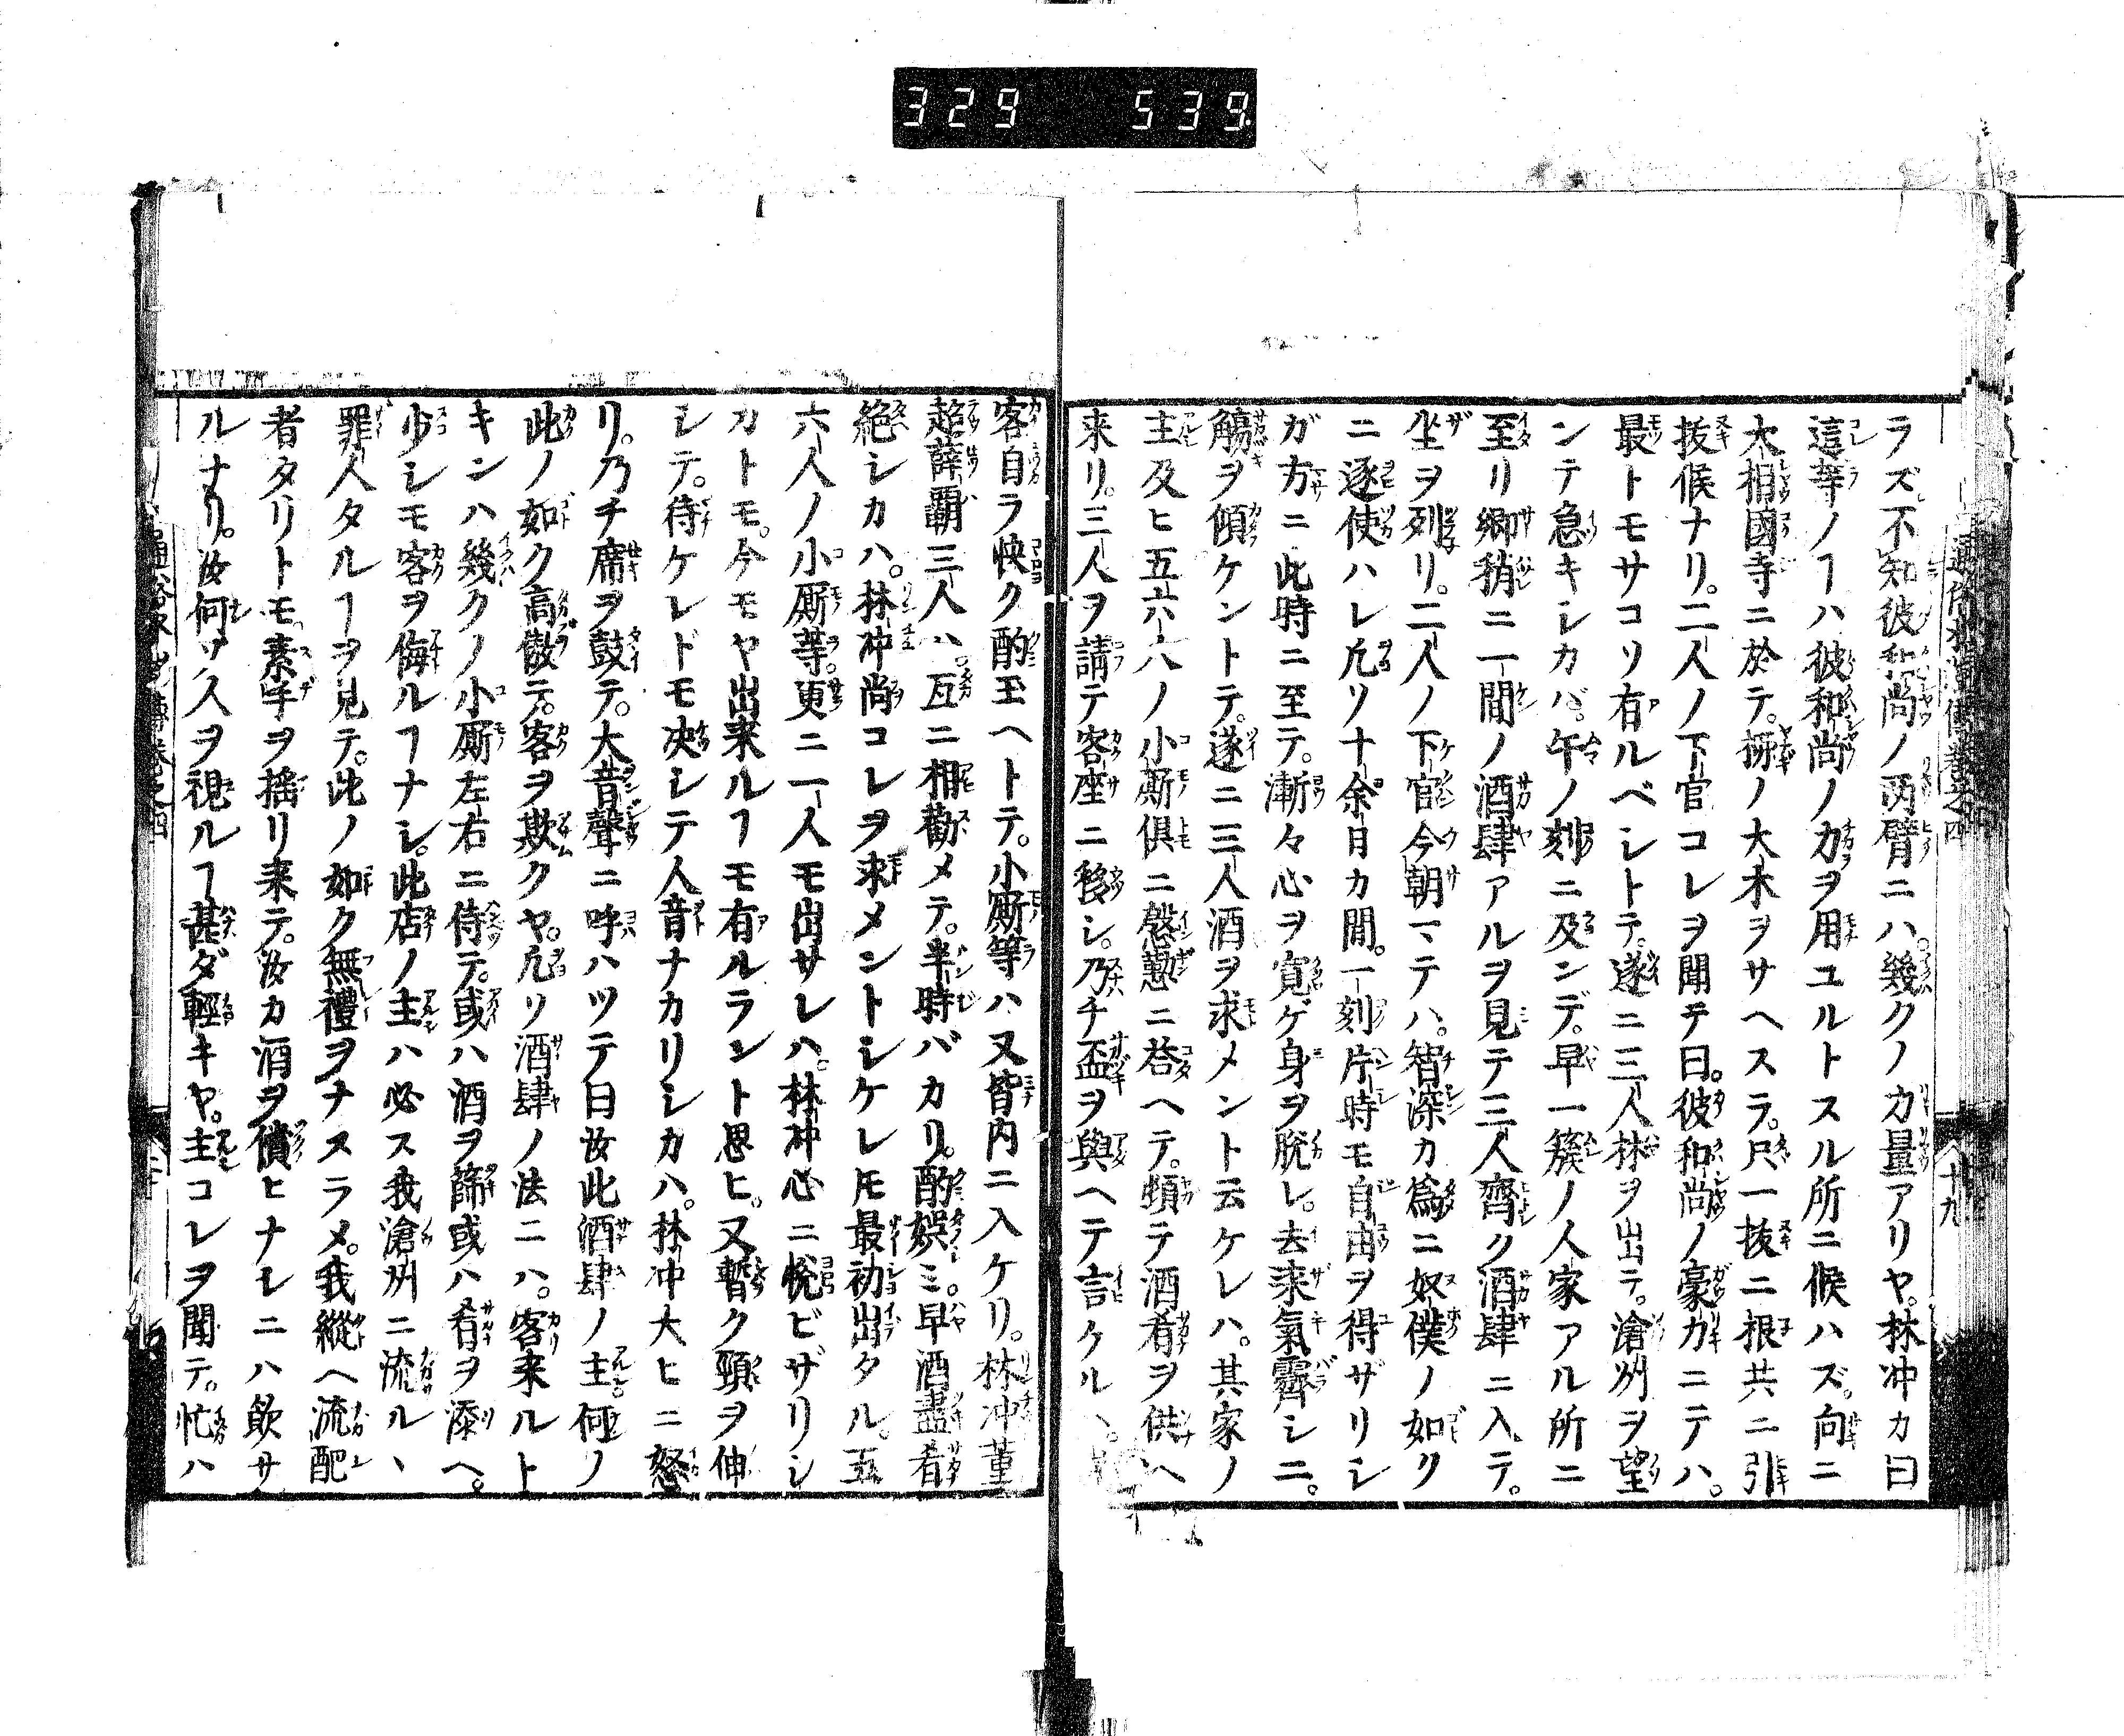 329 539
ラズ不知彼和尚ノ両臂ニハ。幾クノ力量アリヤ。林冲カ曰
這等ノヿハ彼和尚ノ力ヲ用ユルトスル所ニ候ハズ。向ニ
大相國寺ニ於テ。栁ノ大木ヲサヘスラ。尺一抜ニ根共ニ引
抜候ナリ。二人ノ下官コレヲ聞テ曰。彼和尚ノ豪力ニテハ。
最トモサコソ有ルベシトテ。遂ニ三人林ヲ出テ。滄州ヲ望
ンテ急キシカバ。午ノ刻ニ及ンデ。早一簇ノ人家アル所ニ
至リ郷稍ニ一間ノ酒肆アルヲ見テ三人齊ク酒肆ニ入テ。
坐ヲ列リ。二人ノ下官今朝マテハ。智深カ為ニ奴僕ノ如ク
ニ逐使ハレ凢ソ十余日カ間。一刻片時モ自由ヲ得ザリシ
ガ方ニ此時ニ至テ。漸々心ヲ寛ゲ身ヲ脱レ。去来氣霽シニ。
觴ヲ傾ケントテ。遂ニ三人酒ヲ求メント云ケレハ。其家ノ
主及ヒ五六人ノ小厮倶ニ慇懃ニ答ヘテ。頓テ酒肴ヲ供ヘ
来リ。三人ヲ請テ客座ニ移シ。乃チ盃ヲ與ヘテ言ケルヽ。
客自ラ快ク酌玉ヘトテ。小厮等ハ又皆内ニ入ケリ。林冲董
超薛覇三人ハ。互ニ相勸メテ。半時バカリ。酌娯ミ。早酒盡肴
絶シカハ。林冲尚コレヲ求メントシケレ𪜈最初出タル。五
六人ノ小厮等。更ニ一人モ出サレハ。林冲心ニ悦ビザリシ
カトモ。今モヤ出来ルヿモ有ルラント思ヒ。又暫ク頸ヲ伸
シテ。待ケレドモ决シテ人音ナカリシカハ。林冲大ヒニ怒
リ。乃チ席ヲ鼓テ。大音聲ニ呼ハツテ曰汝此酒肆ノ主。何ノ
此ノ如ク高傲テ。客ヲ欺クヤ。凢ソ酒肆ノ法ニハ。客来ルト
キンハ幾クノ小厮左右ニ侍テ。或ハ酒ヲ篩或ハ肴ヲ添ヘ。
少シモ客ヲ侮ルヿナシ。此店ノ主ハ必ス我滄州ニ流ルヽ
罪人タルヿヲ見テ。此ノ如ク無禮ヲナスラメ。我縱ヘ流配
者タリトモ素手ヲ揺リ来テ。汝カ酒ヲ償ヒナシニハ飲サ
ルナリ。汝何ゾ人ヲ視ルヿ甚ダ輕キヤ。主コレヲ聞テ。忙ハ